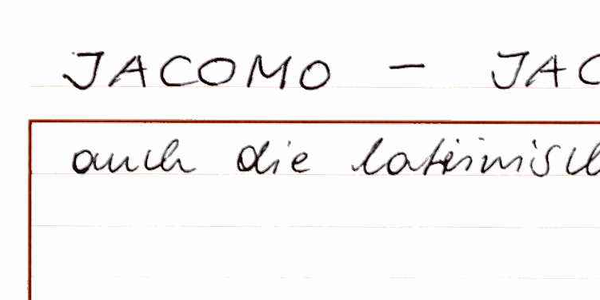 JACOMO - JAC
auch die lateinisch